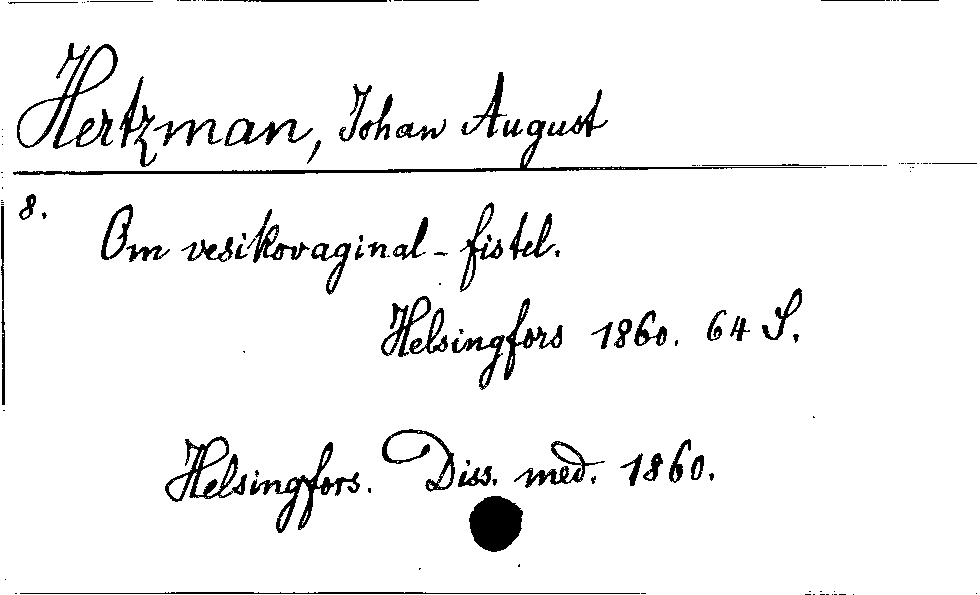 Hertzman, Johan August
8.
Om vesikovaginal-fistel.
Helsingfors 1860. 64 S.
Helsingfors. Diss. med. 1860.